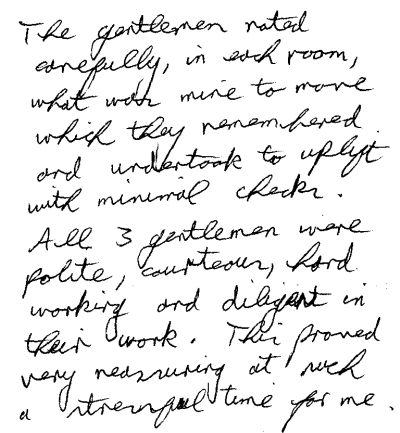 The gentlemen noted
carefully, in each room,
what was mine to move
which they remembered
and undertook to uplift
with minimal checks.
All 3 gentlemen were
polite, courteous, hard
working and diligent in
their work. This proved
very reassuring at such
a stressful time for me.